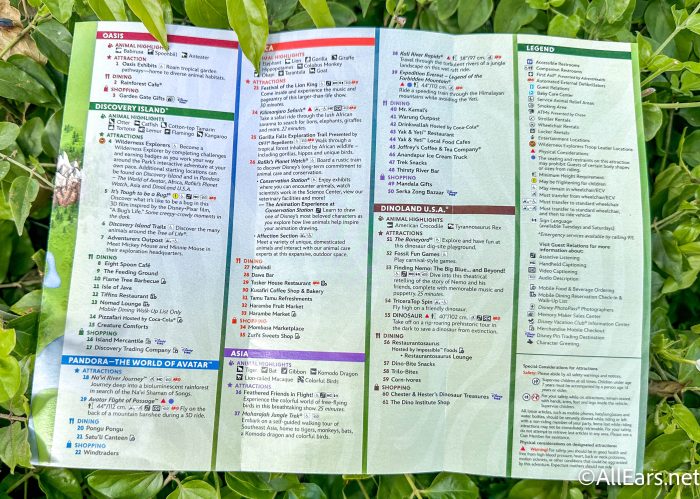 OASIS
ANIMAL HIGHLIGHTS
Babirusa Spoonbill Anteater
ATTRACTION
1 Oasis Exhibits Roam tropical garden
pathways—home to diverse animal habitats.
DINING
2 Rainforest Cafe®
SHOPPING
3 Garden Gate Gifts
DISCOVERY ISLAND®
ANIMAL HIGHLIGHTS
Otter Catfish Cotton-top Tamarin
Tortoise Lemur Flamingo Kangaroo
ATTRACTIONS
4 Wilderness Explorers Become a
Wilderness Explorer by completing challenges
and earning badges as you work your way
around the Park's interactive adventure at your
own pace. Additional starting locations can
be found on Discovery Island and in Pandora
– The World of Avatar, Africa, Rafiki's Planet
Watch, Asia and DinoLand U.S.A.
5 It's Tough to be a Bug!®
Discover what it's like to be a bug in this
3D film inspired by the Disney•Pixar film
"A Bug's Life." Some creepy-crawly moments in
the dark.
6 Discovery Island Trails Discover the many
animals around the Tree of Life®.
7 Adventurers Outpost
Meet Mickey Mouse and Minnie Mouse in
their exploration headquarters.
DINING
8 Eight Spoon Café
9 The Feeding Ground
10 Flame Tree Barbecue
11 Isle of Java
12 Tiffins Restaurant
13 Nomad Lounge
Mobile Dining Walk-Up List Only
14 Pizzafari Hosted by Coca-Cola®
15 Creature Comforts
SHOPPING
16 Island Mercantile
17 Discovery Trading Company
PANDORA—THE WORLD OF AVATAR
ATTRACTIONS
18 Na'vi River Journey
Journey deep into a bioluminescent rainforest
in search of the Na'vi Shaman of Songs.
19 Avatar Flight of Passage
44"/112 cm Fly on the
back of a mountain banshee during a 3D ride.
DINING
20 Pongu Pongu
21 Satu'li Canteen
SHOPPING
22 Windtraders
ANIMAL HIGHLIGHTS
Lion Giraffe Gorilla
Hippopotamus Colobus Monkey
Okapi Tarantula Goat
ATTRACTIONS
23 Festival of the Lion King
Come inside and experience the music and
pageantry of this larger-than-life show.
30 minutes.
24 Kilimanjaro Safaris®
Take a safari ride through the lush African
savanna to search for lions, elephants, giraffes
and more. 22 minutes.
25 Gorilla Falls Exploration Trail Presented by
OFF!® Repellents Walk through a
tropical forest inhabited by African wildlife—
including gorillas, hippos and unique birds.
26 Rafiki's Planet Watch® Board a rustic train
to discover Disney's long-term commitment to
animal care and conservation.
• Conservation Station® Enjoy exhibits
where you can encounter animals, watch
scientists work in the Science Center, view our
veterinary facilities and more!
— The Animation Experience at
Conservation Station Learn to draw
one of Disney's most beloved characters as
you explore how live animals help inspire
your animation drawing.
• Affection Section
Meet a variety of unique, domesticated
animals and interact with our animal care
experts at this expansive, outdoor space.
DINING
27 Mahindi
28 Dawa Bar
29 Tusker House Restaurant
30 Kusafiri Coffee Shop & Bakery
31 Tamu Tamu Refreshments
32 Harambe Fruit Market
33 Harambe Market
SHOPPING
34 Mombasa Marketplace
35 Zuri's Sweets Shop
ASIA
ANIMAL HIGHLIGHTS
Tiger Bat Gibbon Komodo Dragon
Lion-tailed Macaque Colorful Birds
ATTRACTIONS
36 Feathered Friends in Flight!
Experience the colorful world of free-flying
birds in this breathtaking show. 25 minutes.
37 Maharajah Jungle Trek®
Embark on a self-guided walking tour of
Southeast Asia, home to tigers, monkeys, bats,
a Komodo dragon and colorful birds.
38 Kali River Rapids® 38"/97 cm
Travel through the turbulent rivers of a jungle
habitat on this wet raft ride.
39 Expedition Everest – Legend of the
Forbidden Mountain
44"/112 cm
Ride a speeding train through the Himalayan
mountains while avoiding the Yeti.
DINING
40 Mr. Kamal's
41 Warung Outpost
42 Drinkwallah Hosted by Coca-Cola®
43 Yak & Yeti™ Restaurants
44 Yak & Yeti™ Local Food Cafes
45 Joffrey's Coffee & Tea Company®
46 Anandapur Ice Cream Truck
47 Trek Snacks
48 Thirsty River Bar
SHOPPING
49 Mandala Gifts
50 Serka Zong Bazaar
DINOLAND U.S.A.®
ANIMAL HIGHLIGHTS
American Crocodile Tyrannosaurus Rex
ATTRACTIONS
51 The Boneyard® Explore and have fun at
this dinosaur dig-site playground.
52 Fossil Fun Games
Play carnival-style games.
53 Finding Nemo: The Big Blue... and Beyond!
Dive into this theatrical
retelling of the story of Nemo and his
friends, complete with memorable music and
puppetry. 25 minutes.
54 TriceraTop Spin
Fly high on a friendly dinosaur.
55 DINOSAUR 40"/102 cm
Take off on a rip-roaring prehistoric tour in
the dark to save a dinosaur from extinction.
DINING
56 Restaurantosaurus
Hosted by Impossible™ Foods
• Restaurantosaurus Lounge
57 Dino-Bite Snacks
58 Trilo-Bites
59 Corn-ivores
SHOPPING
60 Chester & Hester's Dinosaur Treasures
61 The Dino Institute Shop
LEGEND
Accessible Restrooms
Companion Restrooms
Automated External Defibrillators
Guest Relations
Baby Care Center
Service Animal Relief Areas
Smoking Area
Stroller Rentals
Wheelchair Rentals
Locker Rentals
Entertainment Locations
Wilderness Explorers Troop Leader Locations
Physical Considerations
Minimum Height Requirement
May be frightening for children
May remain in wheelchair/ECV
Must transfer from wheelchair/ECV
Must transfer to standard wheelchair
Must transfer to standard wheelchair,
and then to ride vehicle
Sign Language
(available Tuesdays and Saturdays)
Visit Guest Relations for more
information about:
Assistive Listening
Handheld Captioning
Video Captioning
Audio Description
Mobile Food & Beverage Ordering
Mobile Dining Reservation Check-In &
Walk-Up List
Disney PhotoPass® Photographers
Memory Maker Sales Center
Disney Vacation Club® Information Center
Merchandise Mobile Checkout
Disney Pin Trading Destination
Character Greeting
Special Considerations for Attractions:
Safety: Please abide by all safety warnings and notices.
©AllEars.net